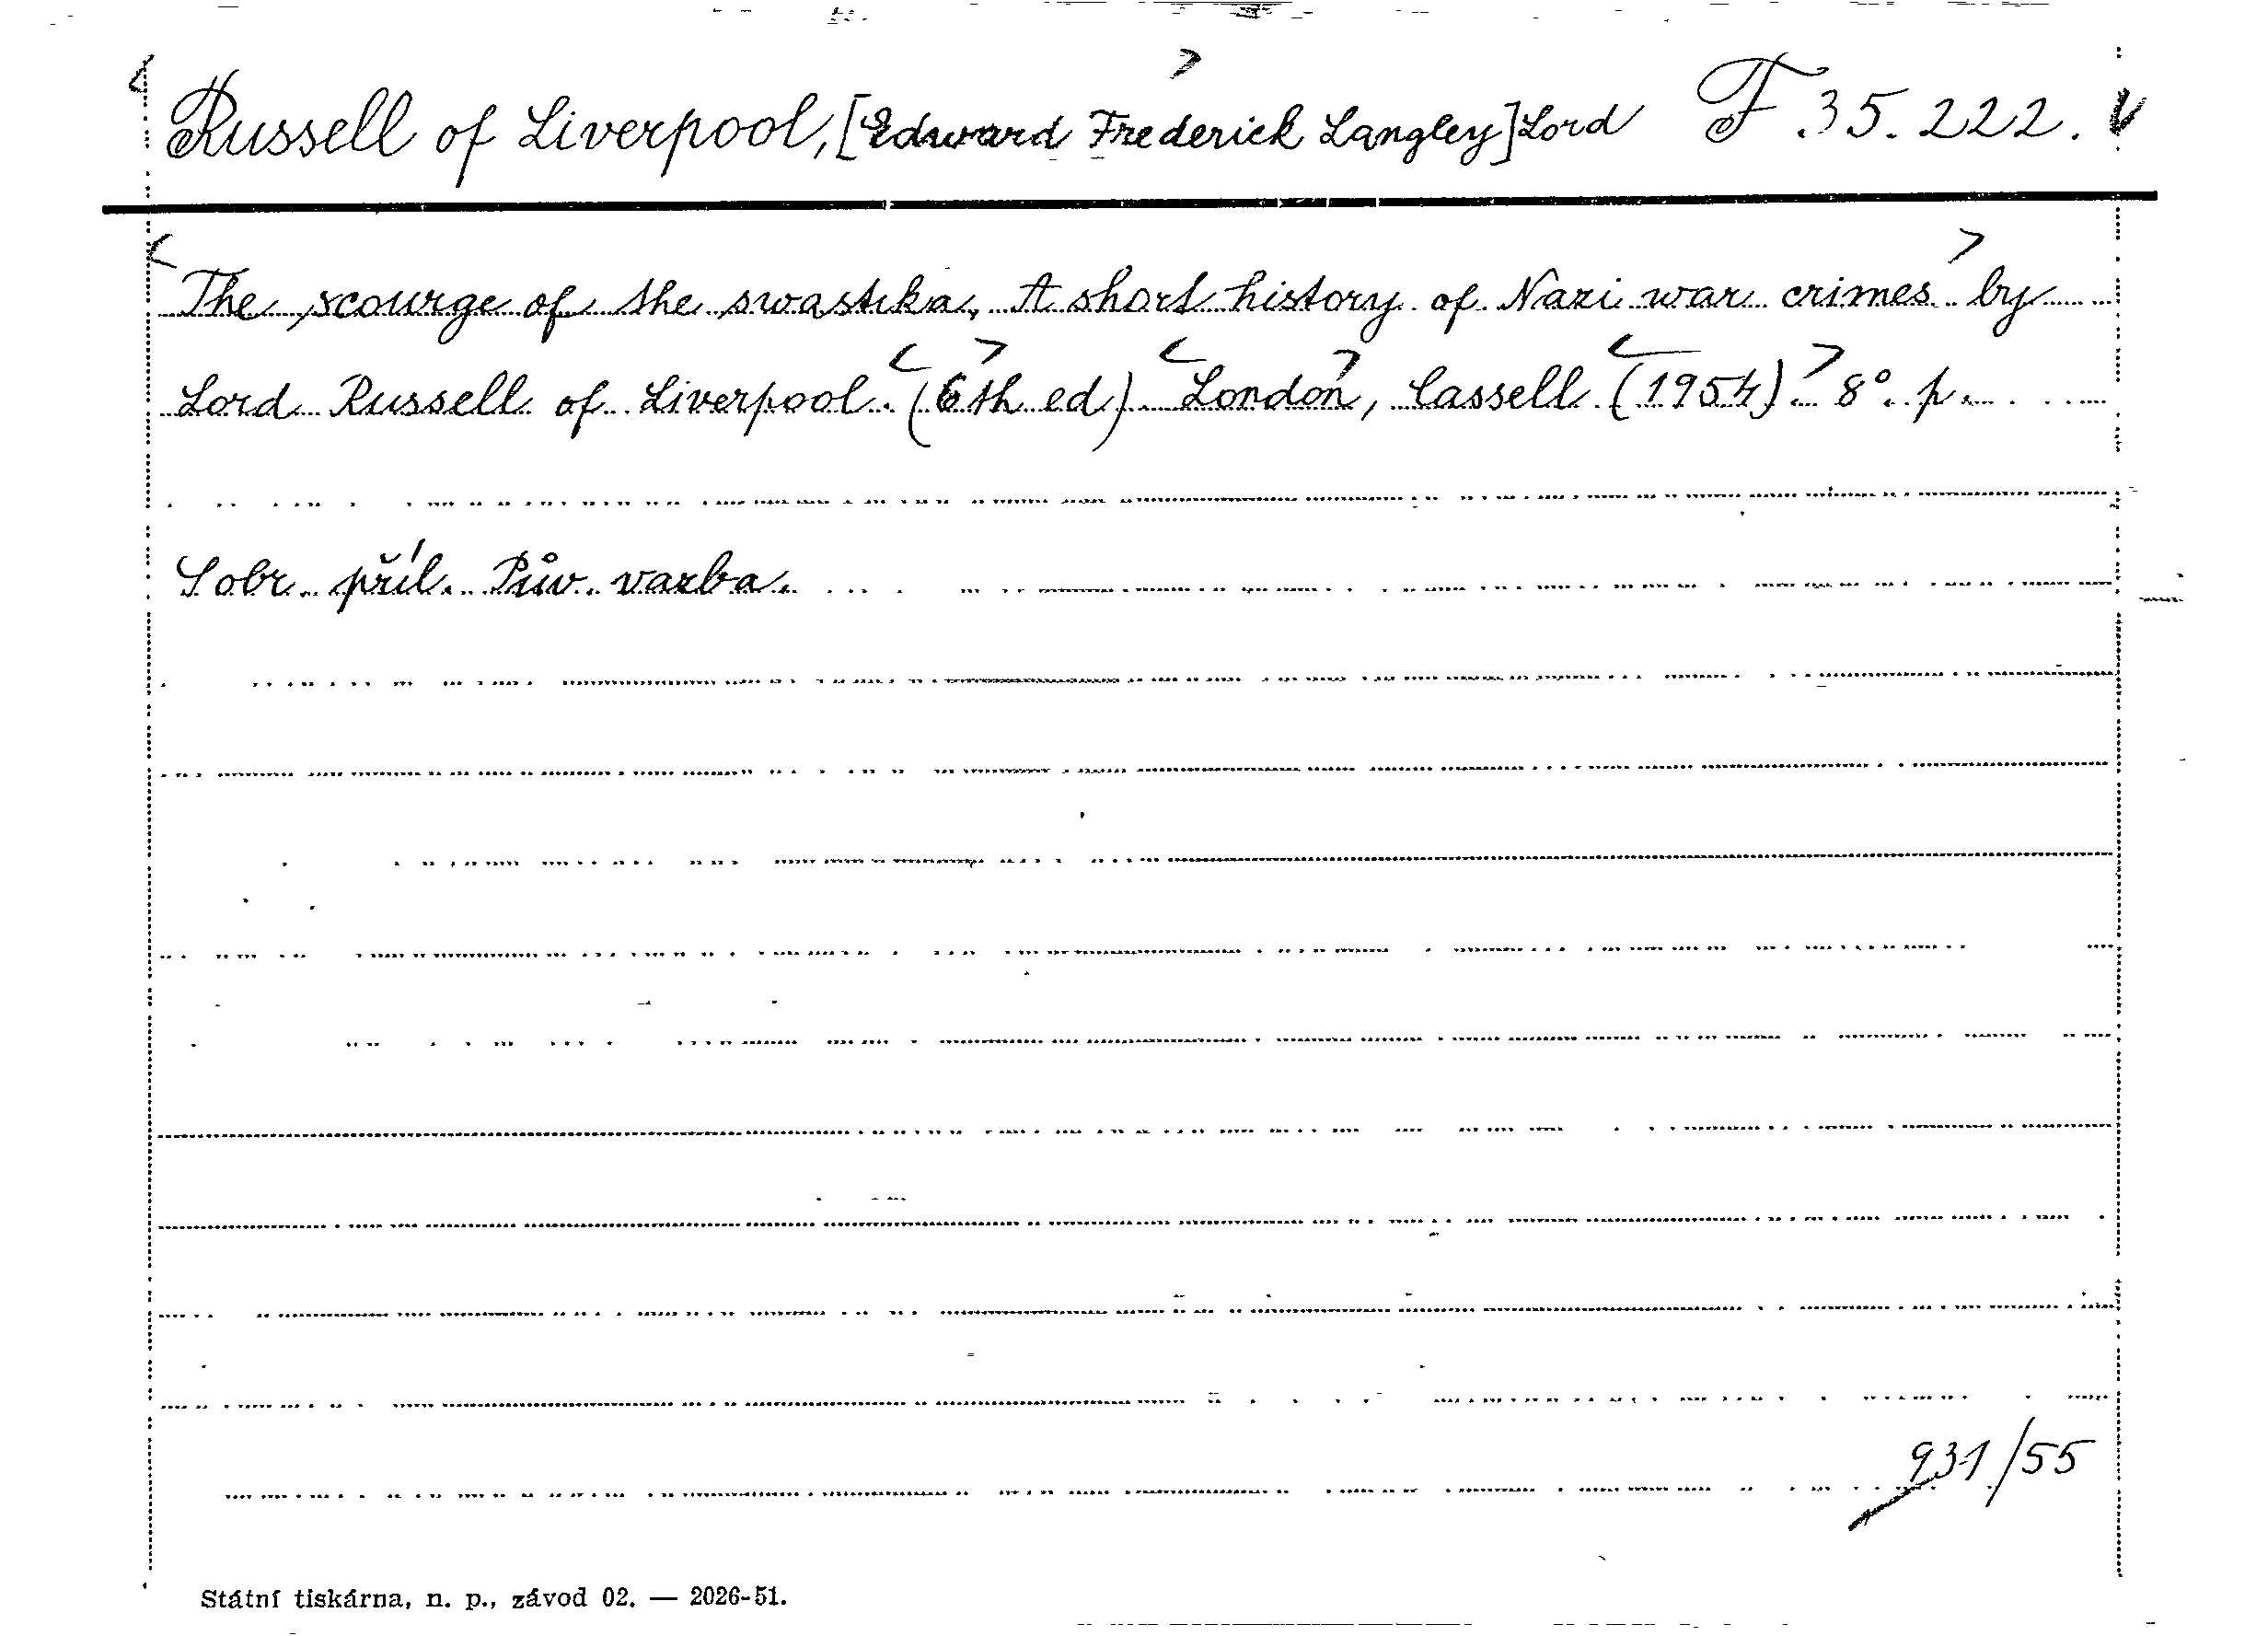 Russell of Liverpool, [Edward Frederick Langley] Lord F. 35. 222.
The scourge of the swastika. A short history of Nazi war crimes by
Lord Russell of Liverpool. (6th ed). London, Cassell (1954). 8°. p.
S obr. příl. Pův. vazba.
931/55
Státní tiskárna, n. p., závod 02. — 2026-51.